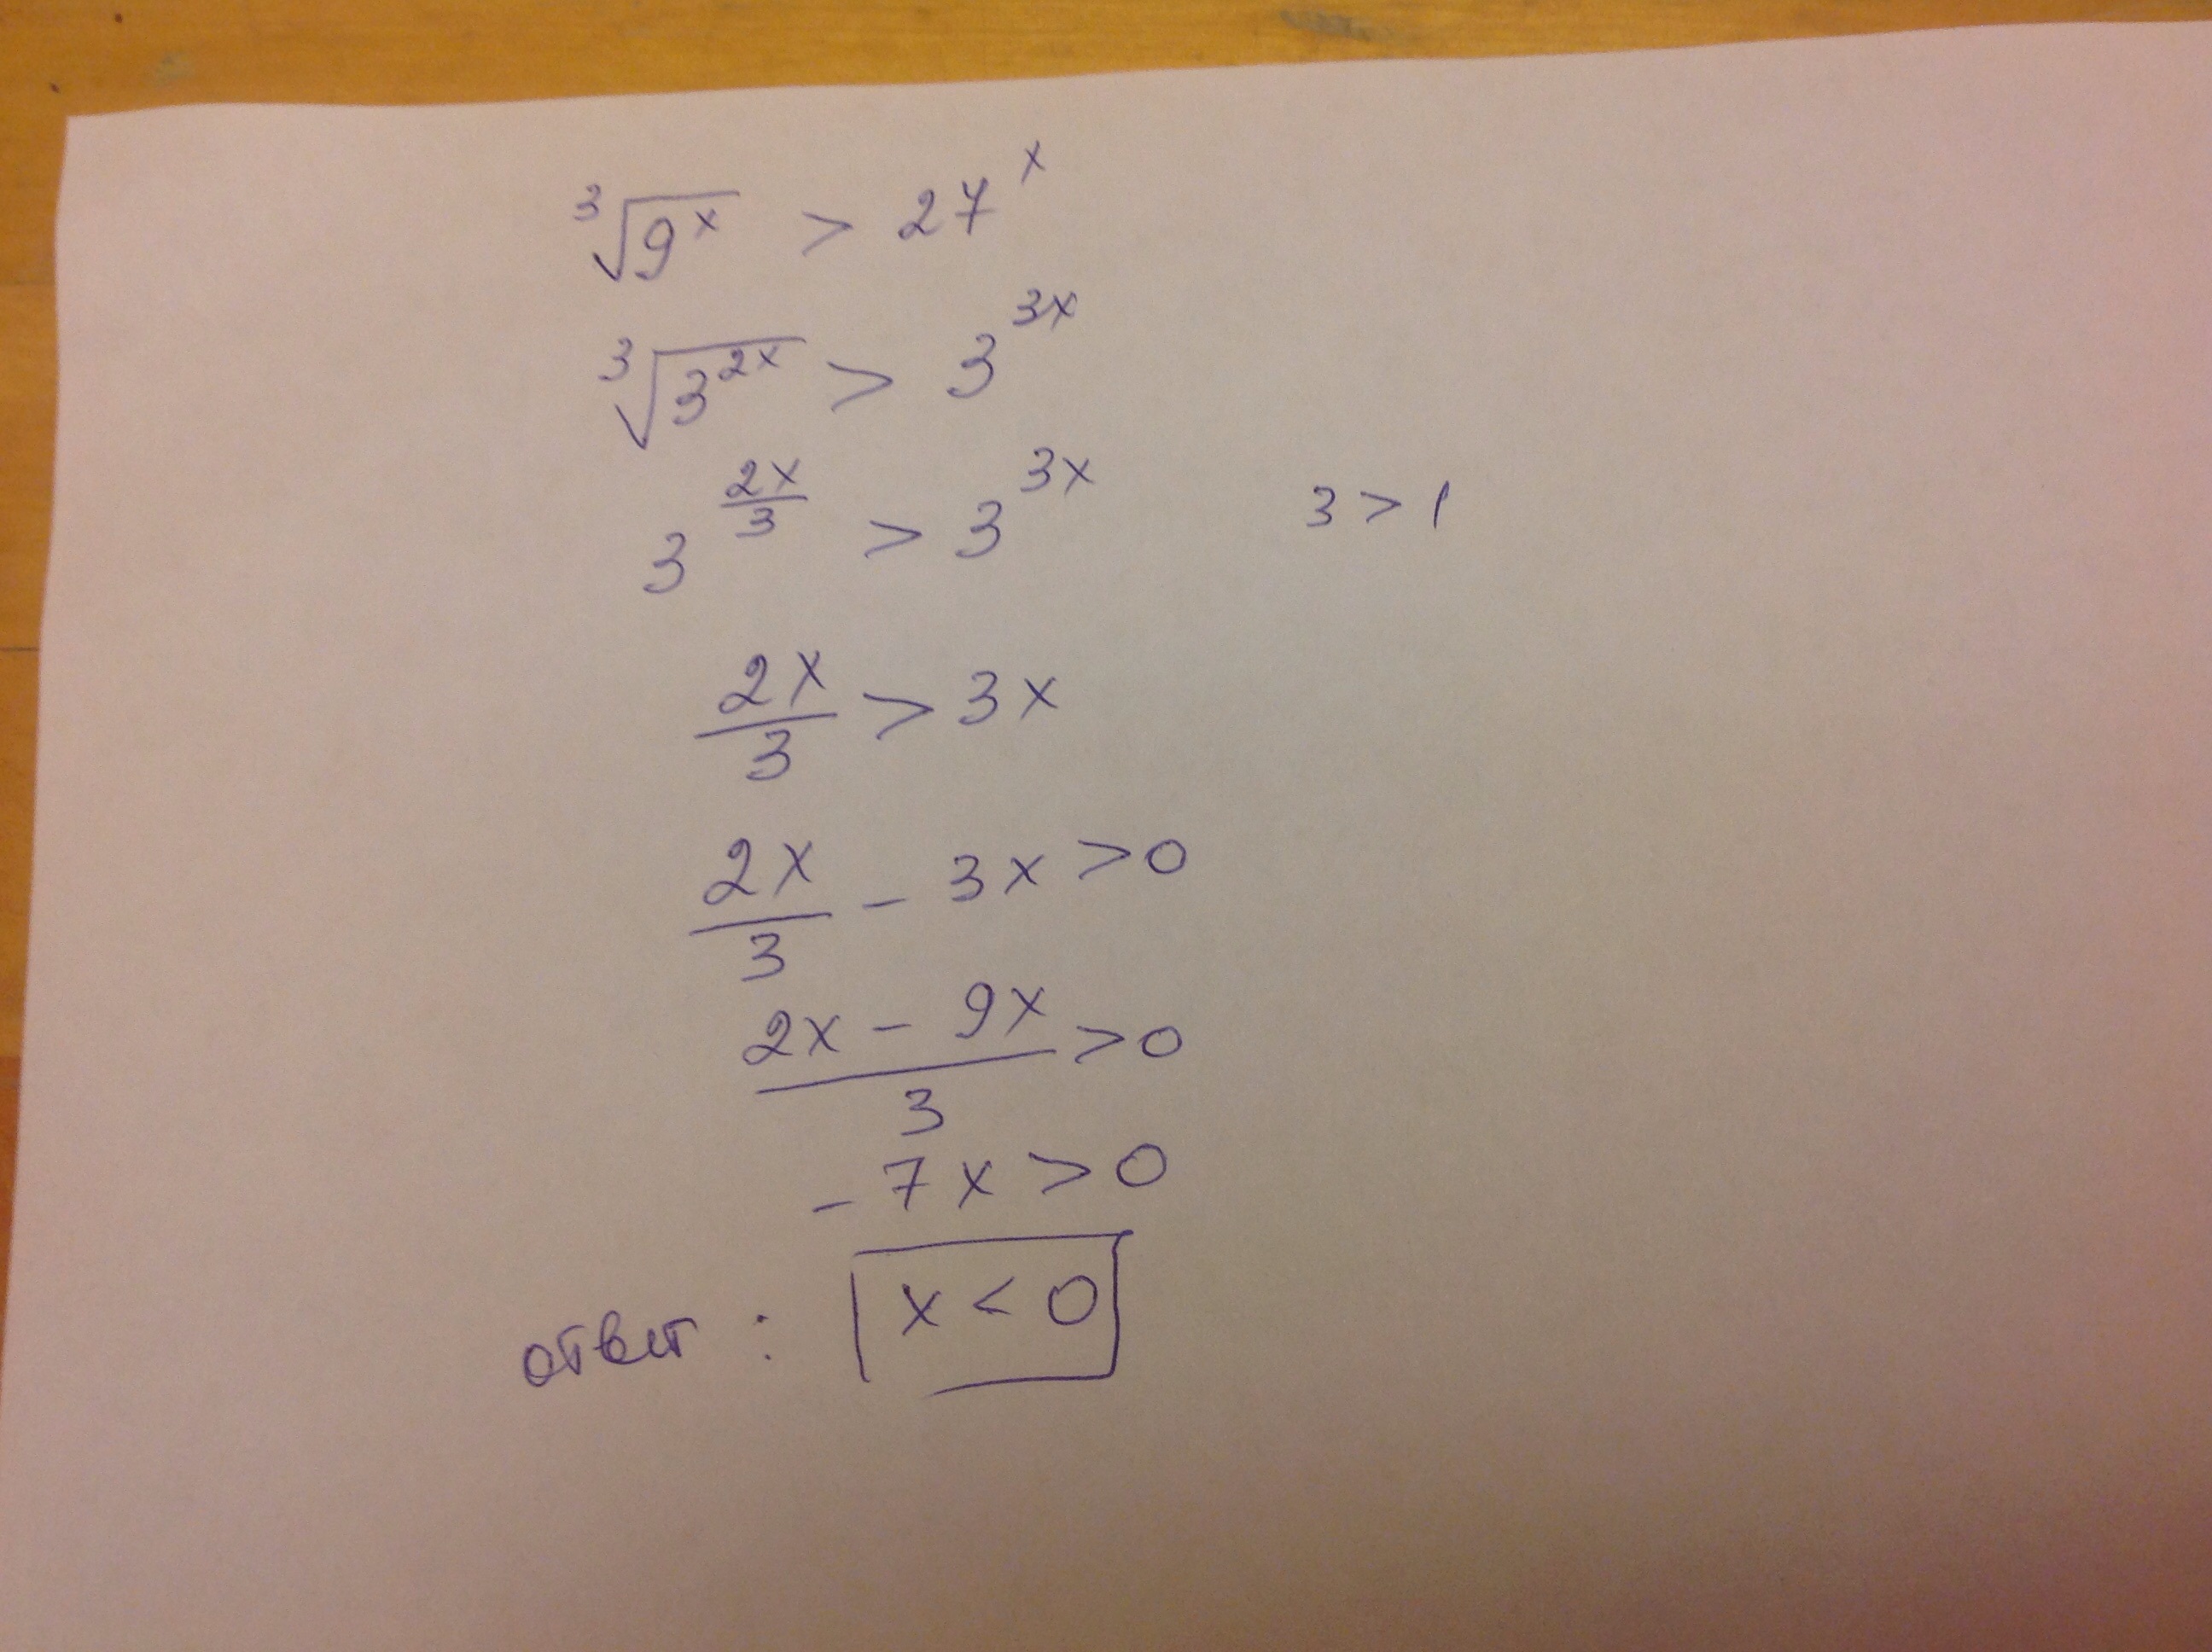 ∛(9^x) > 27^x
∛(3^(2x)) > 3^(3x)
3^(2x/3) > 3^(3x) 3 > 1
2x/3 > 3x
2x/3 - 3x > 0
(2x - 9x)/3 > 0
- 7x > 0
ответ : x < 0